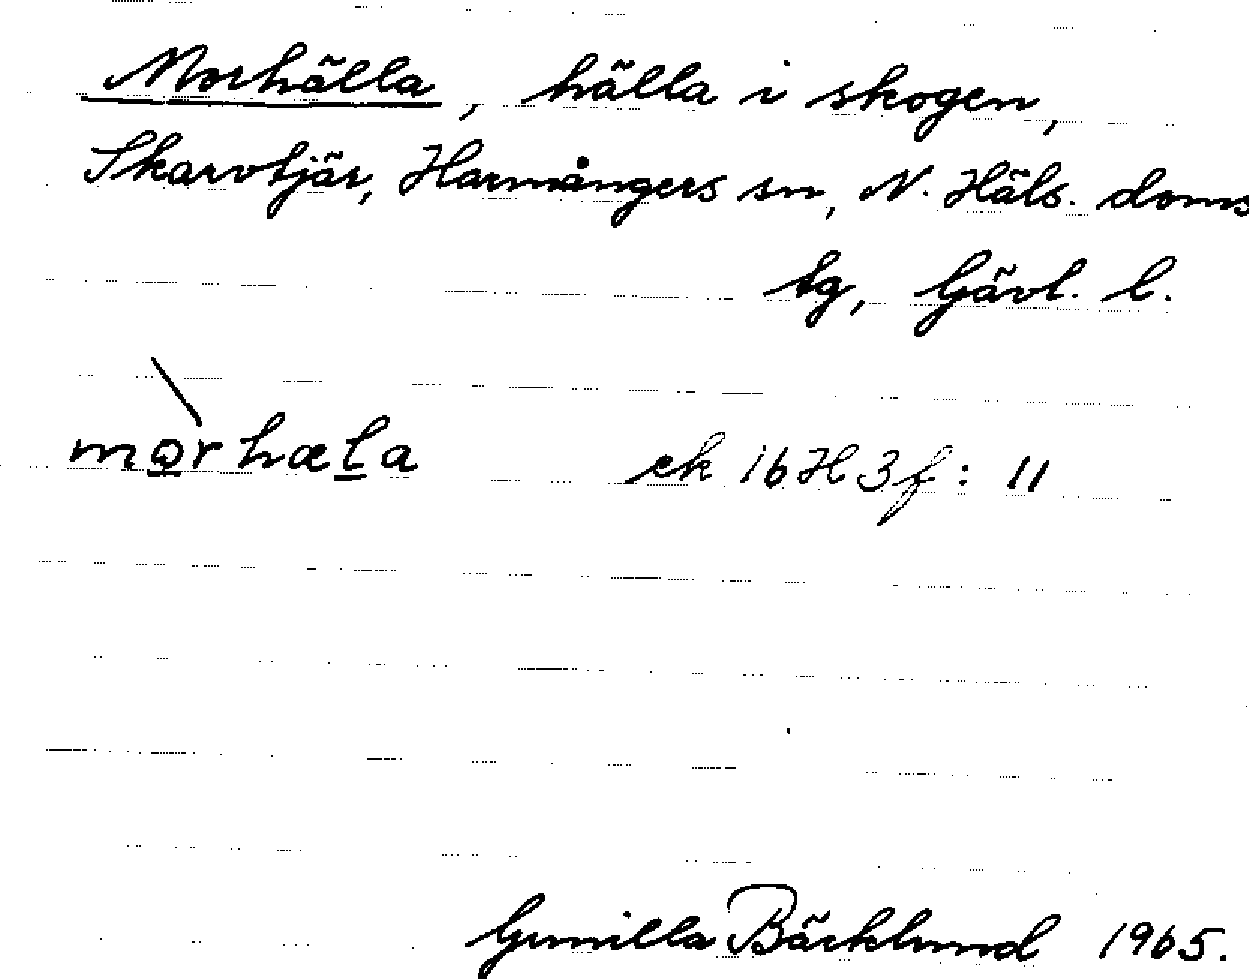 Morhälla, hälla i skogen,
Skarvtjär, Harmångers sn, N. Häls. doms
tg, Gävl. l.
mo̲rhæl̲a ek 16H3f: 11
Gunilla Bäcklund 1965.